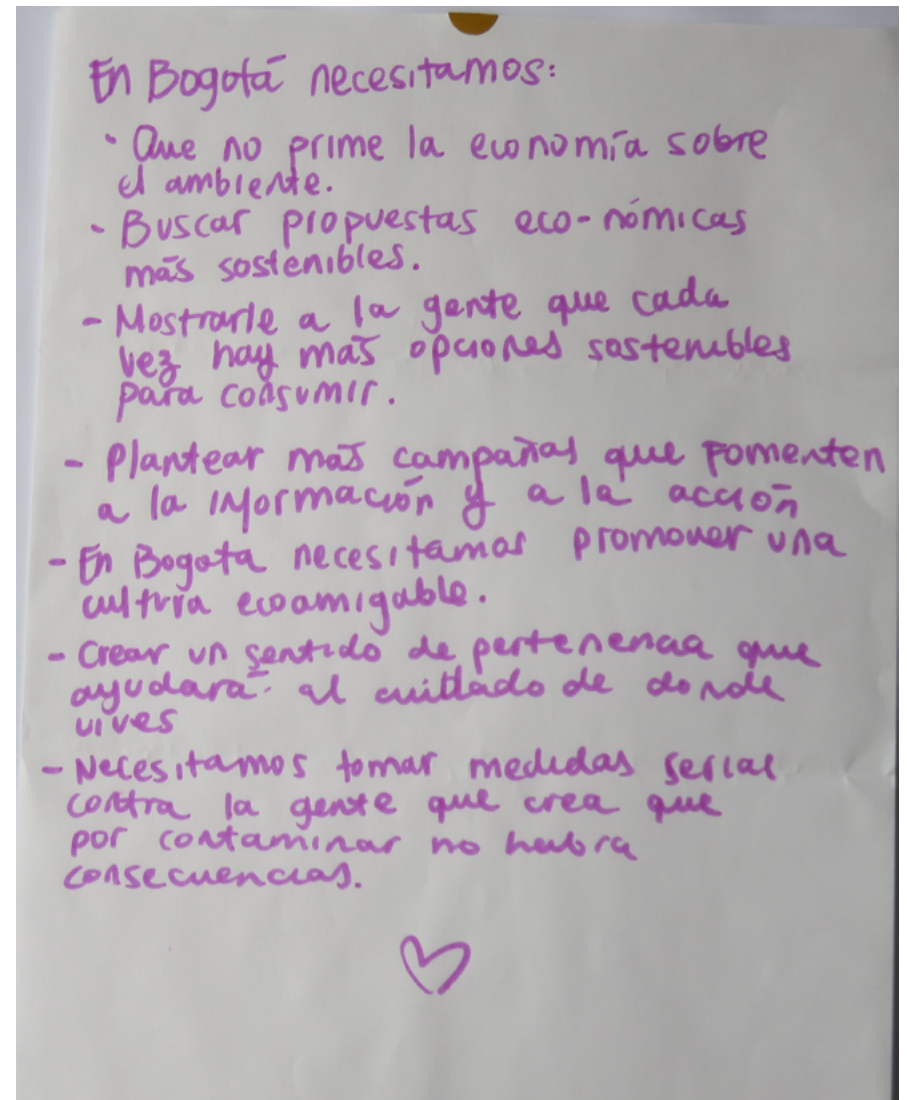 En Bogotá necesitamos:
· Que no prime la economía sobre
el ambiente.
- Buscar propuestas eco-nómicas
más sostenibles.
- Mostrarle a la gente que cada
vez hay más opciones sostenibles
para consumir.
- Plantear más campañas que fomenten
a la información y a la acción
- En Bogota necesitamos promover una
cultura ecoamigable.
- Crear un sentido de pertenencia que
ayudará al cuidado de donde
vives
- Necesitamos tomar medidas serias
contra la gente que crea que
por contaminar no habra
consecuencias.